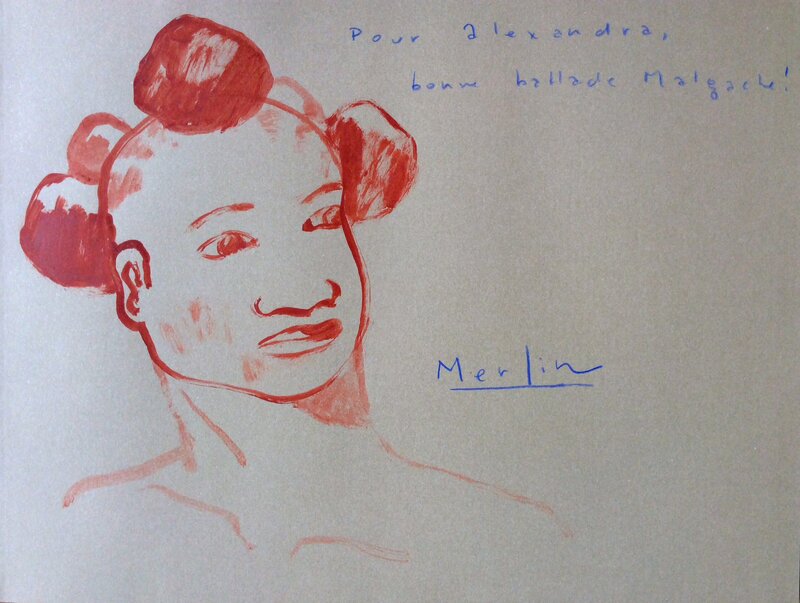 Pour Alexandra,
bonne ballade Malgache!
Merlin